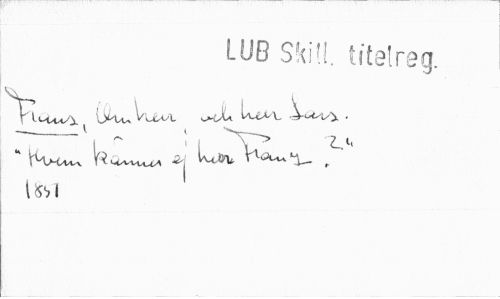 LUB Skill. titelreg.
Frans, Om herr, och herr Lars.
"Hvem känner ej herr Franz?"
1851